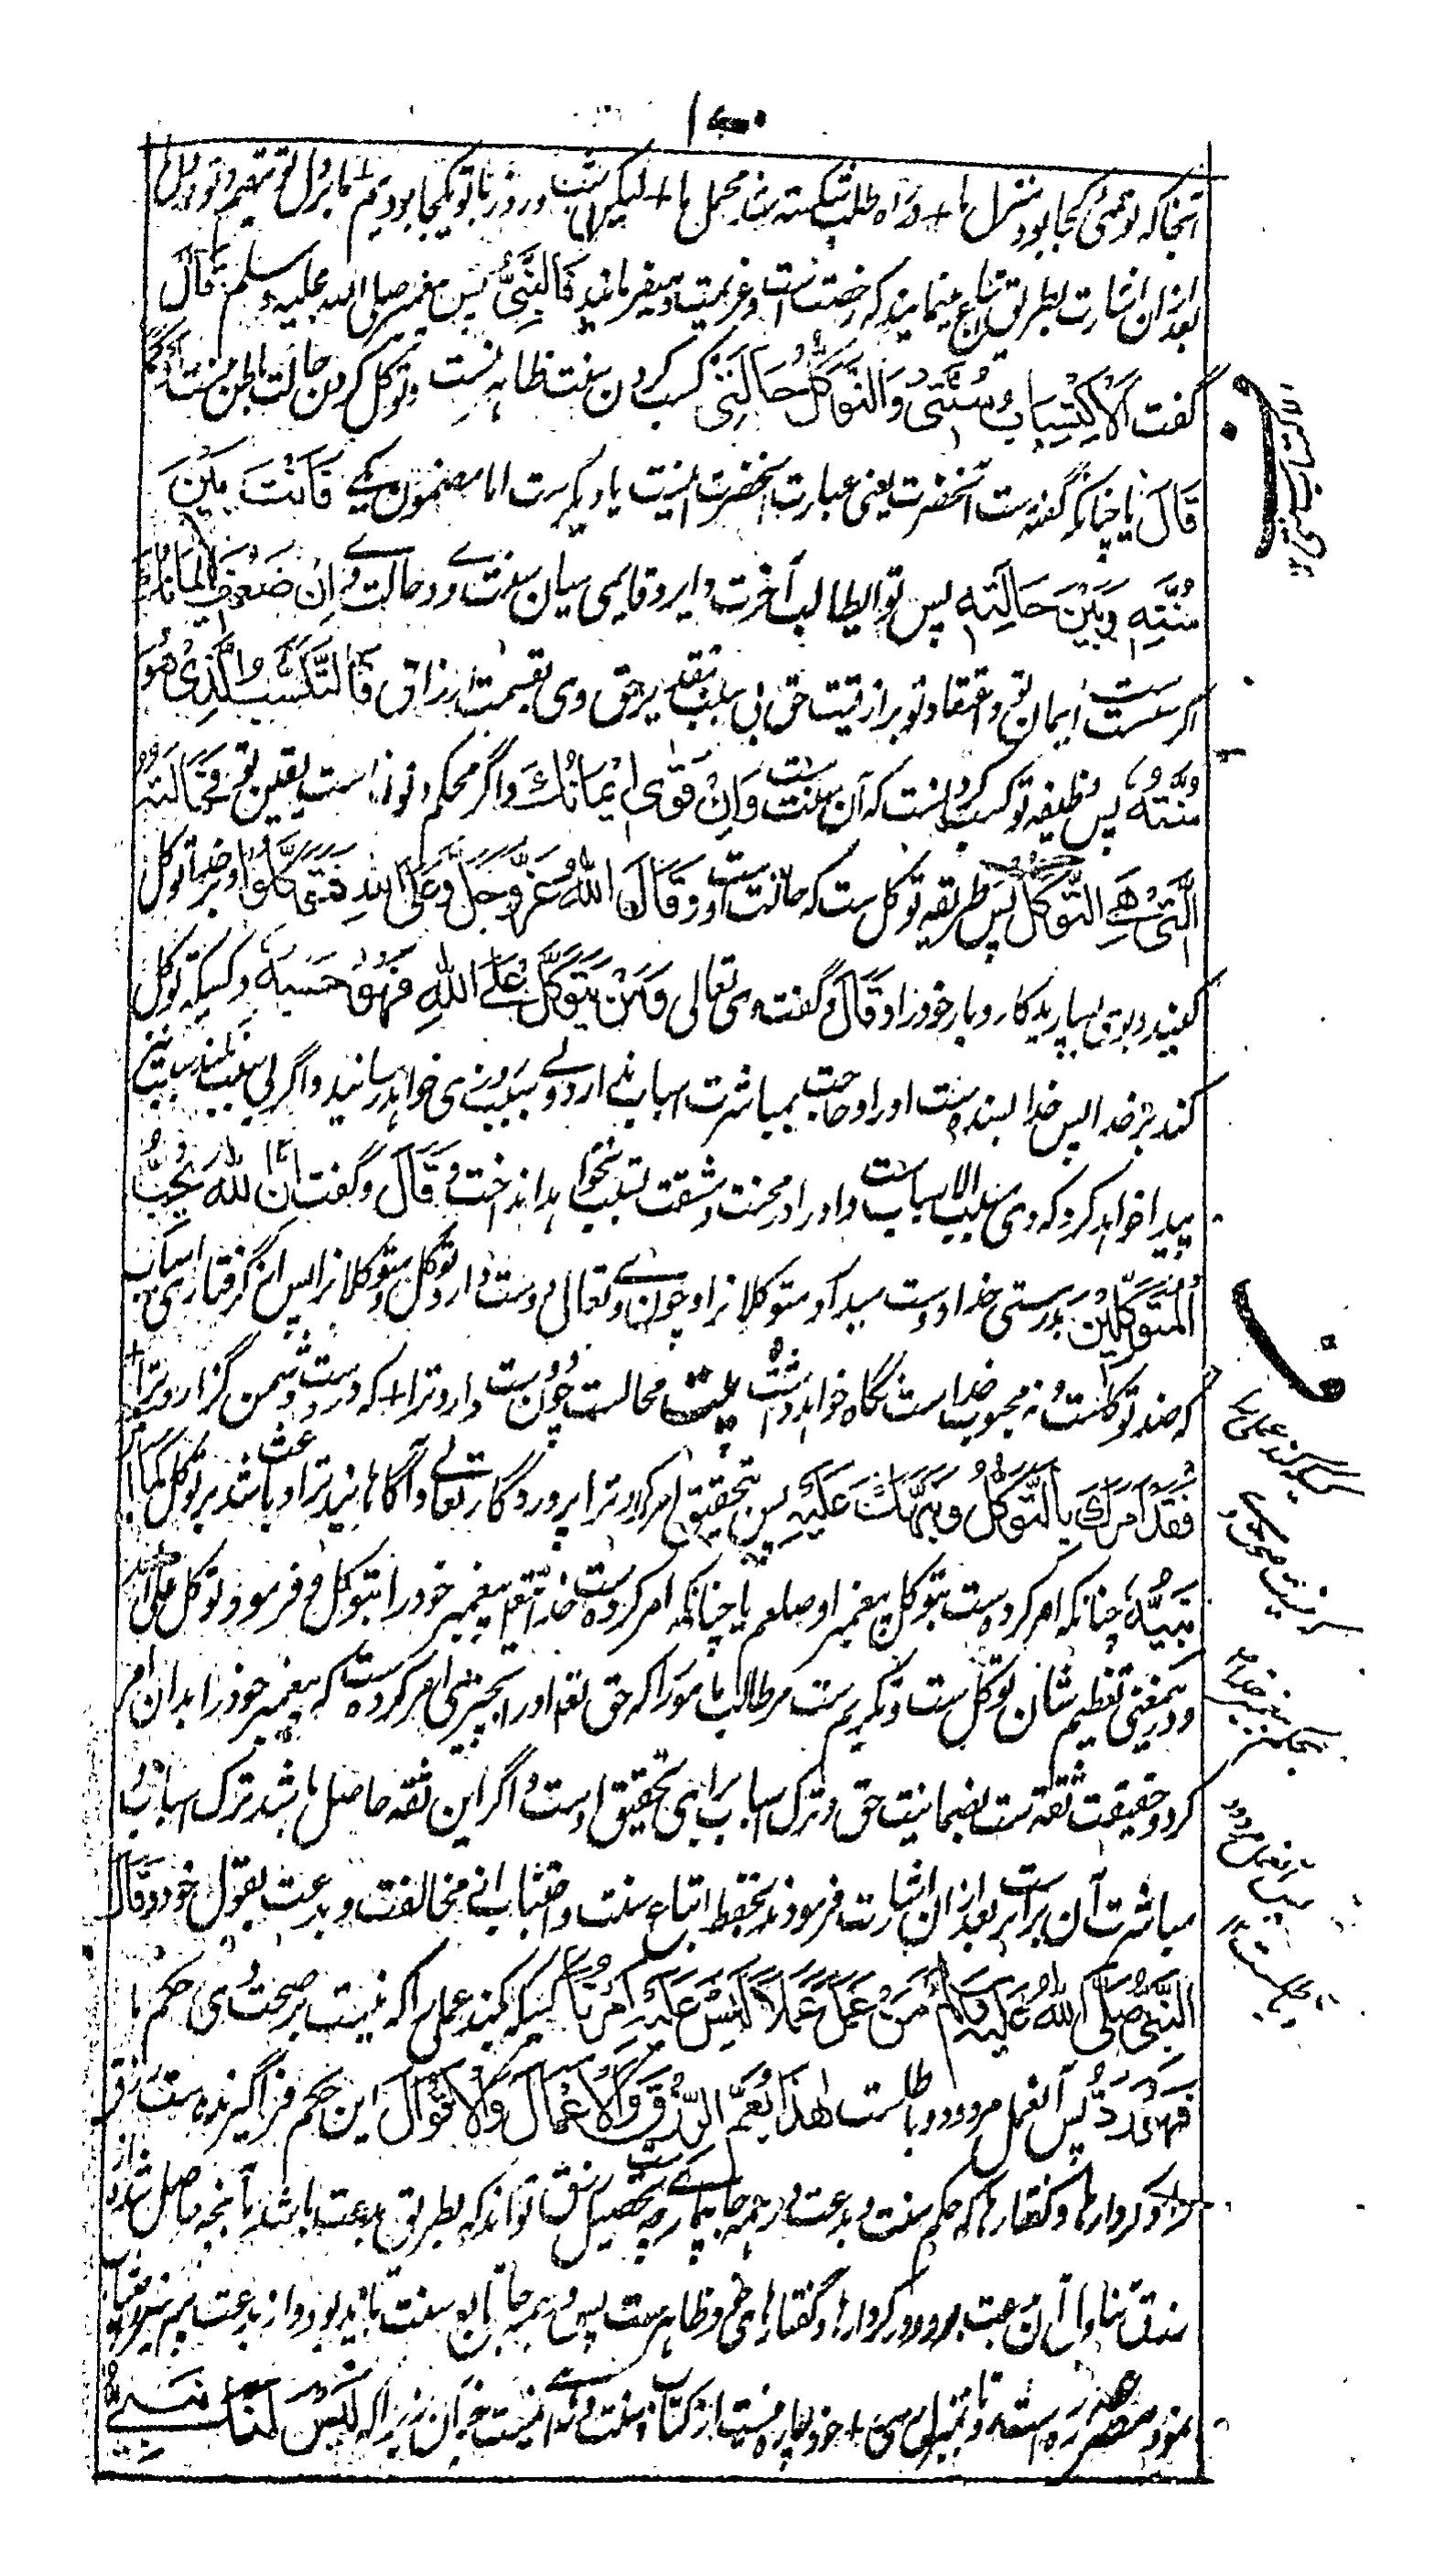 آنجا که توئی کجا بود منزل ما + در راه طلب شکسته شد محمل ما + لیکن شب و روز با تو یکجا بودیم + ما بر دل تو مقیم و تو در دل ما
بعد ازان اشارت بطریق اتباع مینمایند که رخصت است و عزیمت و میفرمایند فَالنَّبِیُّ پس پیغمبر صلی الله علیه وسلم قَالَ
گفت اَلْاِکْتِسَابُ سُنَّتِیْ وَالتَّوَکُّلُ حَالَتِیْ کسب کردن سنت ظاهر منست و توکل کردن حالت باطن منست اَوْ کَمَا
قَالَ یا چنانکه گفته ست آنحضرت یعنی عبارت آنحضرت اینست یا دیگرست اما مضمون یکی فَاَنْتَ بَیْنَ
سُنَّتِهٖ وَبَیْنَ حَالَتِهٖ پس تو ایطالب آخرت دایر و قایمی میان سنت وے و حالت وے اِنْ ضَعُفَ اِیْمَانُكَ
اگر سست ست ایمان تو و اعتقاد تو برازقیت حق بی سبب تقدیر حق وی بقسمت ارزاق فَالتَّکَسُّبُ الَّذِیْ هُوَ
سُنَّتُهٗ پس وظیفه تو کسب کردنست که آن سنت ست وَاِنْ قَوِیَ اِیْمَانُكَ و اگر محکم و تواناست یقین تو فَحَالَتُهُ
الَّتِیْ هِیَ التَّوَکُّلُ پس طریقه توکل ست که حالت ست او و قَالَ اللّٰهُ عَزَّوَجَلَّ وَعَلَی اللّٰهِ فَتَوَکَّلُوْا و بر خدا توکل
کنید و بوی بسپارید کار و بار خود را و قَالَ و گفت وی تعالی وَمَنْ یَتَوَکَّلْ عَلَی اللّٰهِ فَهُوَ حَسْبُهٗ و کسیکه توکل
کند بر خدا پس خدا بسنده ست او را و حاجت بمباشرت اسباب ندارد وے بے سبب روزی خواهد رسانید و اگر بی سبب نکند سبب نیز
پیدا خواهد کرد که وی مسبب الاسباب ست و او را در محنت و مشقت تسبب نخواهد انداخت وَ قَالَ و گفت اِنَّ اللّٰهَ یُحِبُّ
الْمُتَوَکِّلِیْنَ بدرستی خدا دوست میدارد متوکلانرا و چون وے تعالی دوست دارد توکل و متوکلانرا پس از گرفتاری اسباب
که ضد توکلست و نه محبوب خداست نگاه خواهد داشت بیت محالست چون دوست دارد ترا + که در دست دشمن گذارد ترا +
فَقَدْ اَمَرَكَ بِالتَّوَکُّلِ وَنَبَّهَكَ عَلَیْهِ پس بتحقیق امر کرد ترا پروردگار تعالے و آگاهانید ترا و باعث شد بر توکل کَمَا اَمَرَ
نَبِیَّهٗ چنانکه امر کرده ست بتوکل پیغمبر او صلعم یا چنانکه امر کرده ست خدا تعالی پیغمبر خود را بتوکل و فرمود و توکل علی الله
و درینمعنی تعظیم شان توکل ست و تکریم ست مر طالب مامور را که حق تعالی او را بچیزی امر کرده ست که پیغمبر خود را بدان امر
کرد و حقیقت ثقه ست بضمانیت حق و ترک اسباب برای تحقیق اوست و اگر این ثقه حاصل باشد ترک اسباب و
مباشرت آن برابر ست بعد ازان اشارت فرمودند بحفظ اتباع سنت و اجتناب از مخالفت و بدعت بقول خود و قَالَ
النَّبِیُّ صَلَّی اللّٰهُ عَلَیْهِ وَسَلَّمَ مَنْ عَمِلَ عَمَلًا لَیْسَ عَلَیْهِ اَمْرُنَا کسیکه کند عملی را که نیست بر صحت وی حکم ما
فَهُوَ رَدٌّ پس آنعمل مردود و باطلست هٰذَا یَعُمُّ الرِّزْقَ وَالْاَعْمَالَ وَالْاَقْوَالَ این حکم فراگیرنده ست رزق
را و کردارها و گفتارها که حکم سنت و بدعت در همه جا جاریست چه تحصیل رزق تواند که بطریق بدعت باشد یا آنچه حاصل شده از
رزق تناول آن بدعت بود و در کردارها و گفتارهای خود ظاهرست پس در همه جا تابع سنت باید بود و از بدعت پرهیز
نمود مصرع خود چاره نیست از کتاب و سنت زیرا که لَیْسَ لَنَا نَبِیٌّ